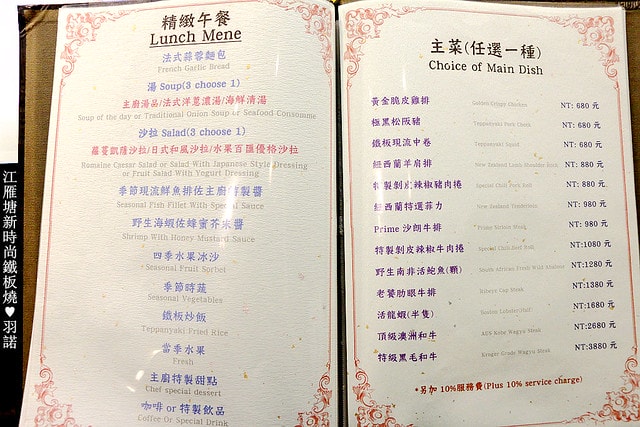 精緻午餐
Lunch Mene
法式蒜蓉麵包
French Garlic Bread
湯 Soup(3 choose 1)
主廚湯品/法式洋蔥濃湯/海鮮清湯
Soup of the day or Traditional Onion Soup or Seafood Consomme
沙拉 Salad(3 choose 1)
蘿蔓凱薩沙拉/日式和風沙拉/水果百匯優格沙拉
Romaine Caesar Salad or Salad With Japanese Style Dressing
or Fruit Salad With Yogurt Dressing
季節現流鮮魚排佐主廚特製醬
Seasonal Fish Fillet With Special Sauce
野生海蝦佐蜂蜜芥末醬
Shrimp With Honey Mustard Sauce
四季水果冰沙
Seasonal Fruit Sorbet
季節時蔬
Seasonal Vegetables
鐵板炒飯
Teppanyaki Fried Rice
當季水果
Fresh
主廚特製甜點
Chef special dessert
咖啡 or 特製飲品
Coffee Or Special Drink
主菜(任選一種)
Choice of Main Dish
黃金脆皮雞排 Golden Crispy Chicken NT: 680 元
極黑松阪豬 Teppanyaki Pork Cheek NT: 680 元
鐵板現流中卷 Teppanyaki Squid NT: 680 元
紐西蘭羊肩排 New Zealand Lamb Shoulder NT: 880 元
特製剝皮辣椒豬肉捲 Special Chili Pork Roll NT: 880 元
紐西蘭特選菲力 New Zealand Tenderloin NT: 980 元
Prime 沙朗牛排 Prime Sirloin Steak NT: 980 元
特製剝皮辣椒牛肉捲 Special Chili Beef Roll NT:1080 元
野生南非活鮑魚(顆) South African Fresh Wild Abalone NT:1280 元
老饕肋眼牛排 Ribeye Cap Steak NT:1380 元
活龍蝦(半隻) Boston Lobster(Half) NT:1680 元
頂級澳洲和牛 AUS Kobe Wagyu Steak NT:2680 元
特級黑毛和牛 Kuroge Grade Wagyu Steak NT:3880 元
*另加 10%服務費(Plus 10% service charge)
江雁塘新時尚鐵板燒♥羽諾